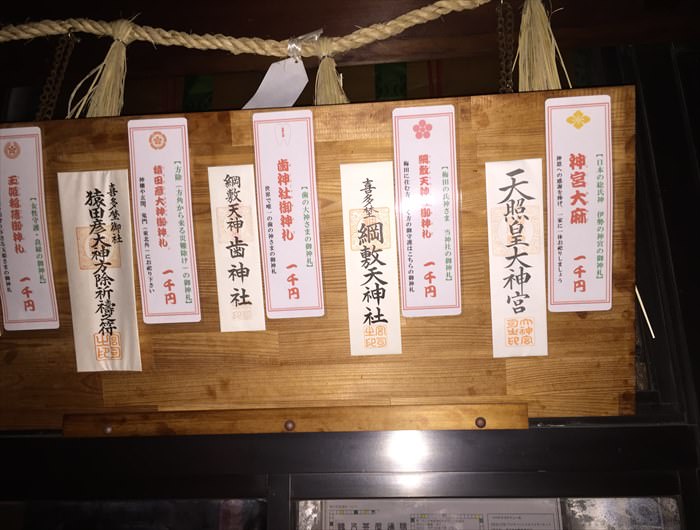 【日本の総氏神 伊勢の神宮の御神札】
神宮大麻 一千円
神恩への感謝を捧げ、一家に一体お祀りしましょう
天照皇大神宮
【梅田の氏神さま 当神社の御神札】
綱敷天神御神札 一千円
喜多埜 綱敷天神社
【歯の大神さまの御神札】
歯神社御神札 一千円
世界で唯一の歯の神さまの御神札
綱敷天神 歯神社
【方除(方角から来る災難除け)の御神札】
猿田彦大神御神札 一千円
神棚や玄関、鬼門(東北角)にお祀り下さい
喜多埜御社
猿田彦大神方除祈禱符
【女性守護・良縁の御神札】
玉姫稲荷御神札 一千円